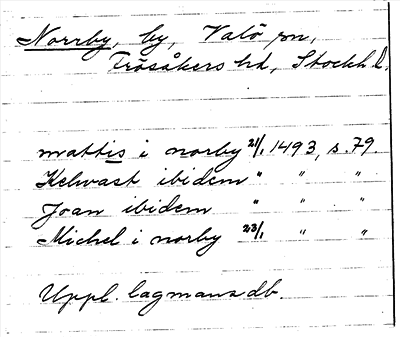 Norrby, by, Valö sn,
Frösåkers hd, Stockh. l.
mattis i norby 21/1 1493, s. 79
Kelwast ibidem " " "
Joan ibidem " " "
Michel i norby 23/1 " "
Uppl. lagmansdb.